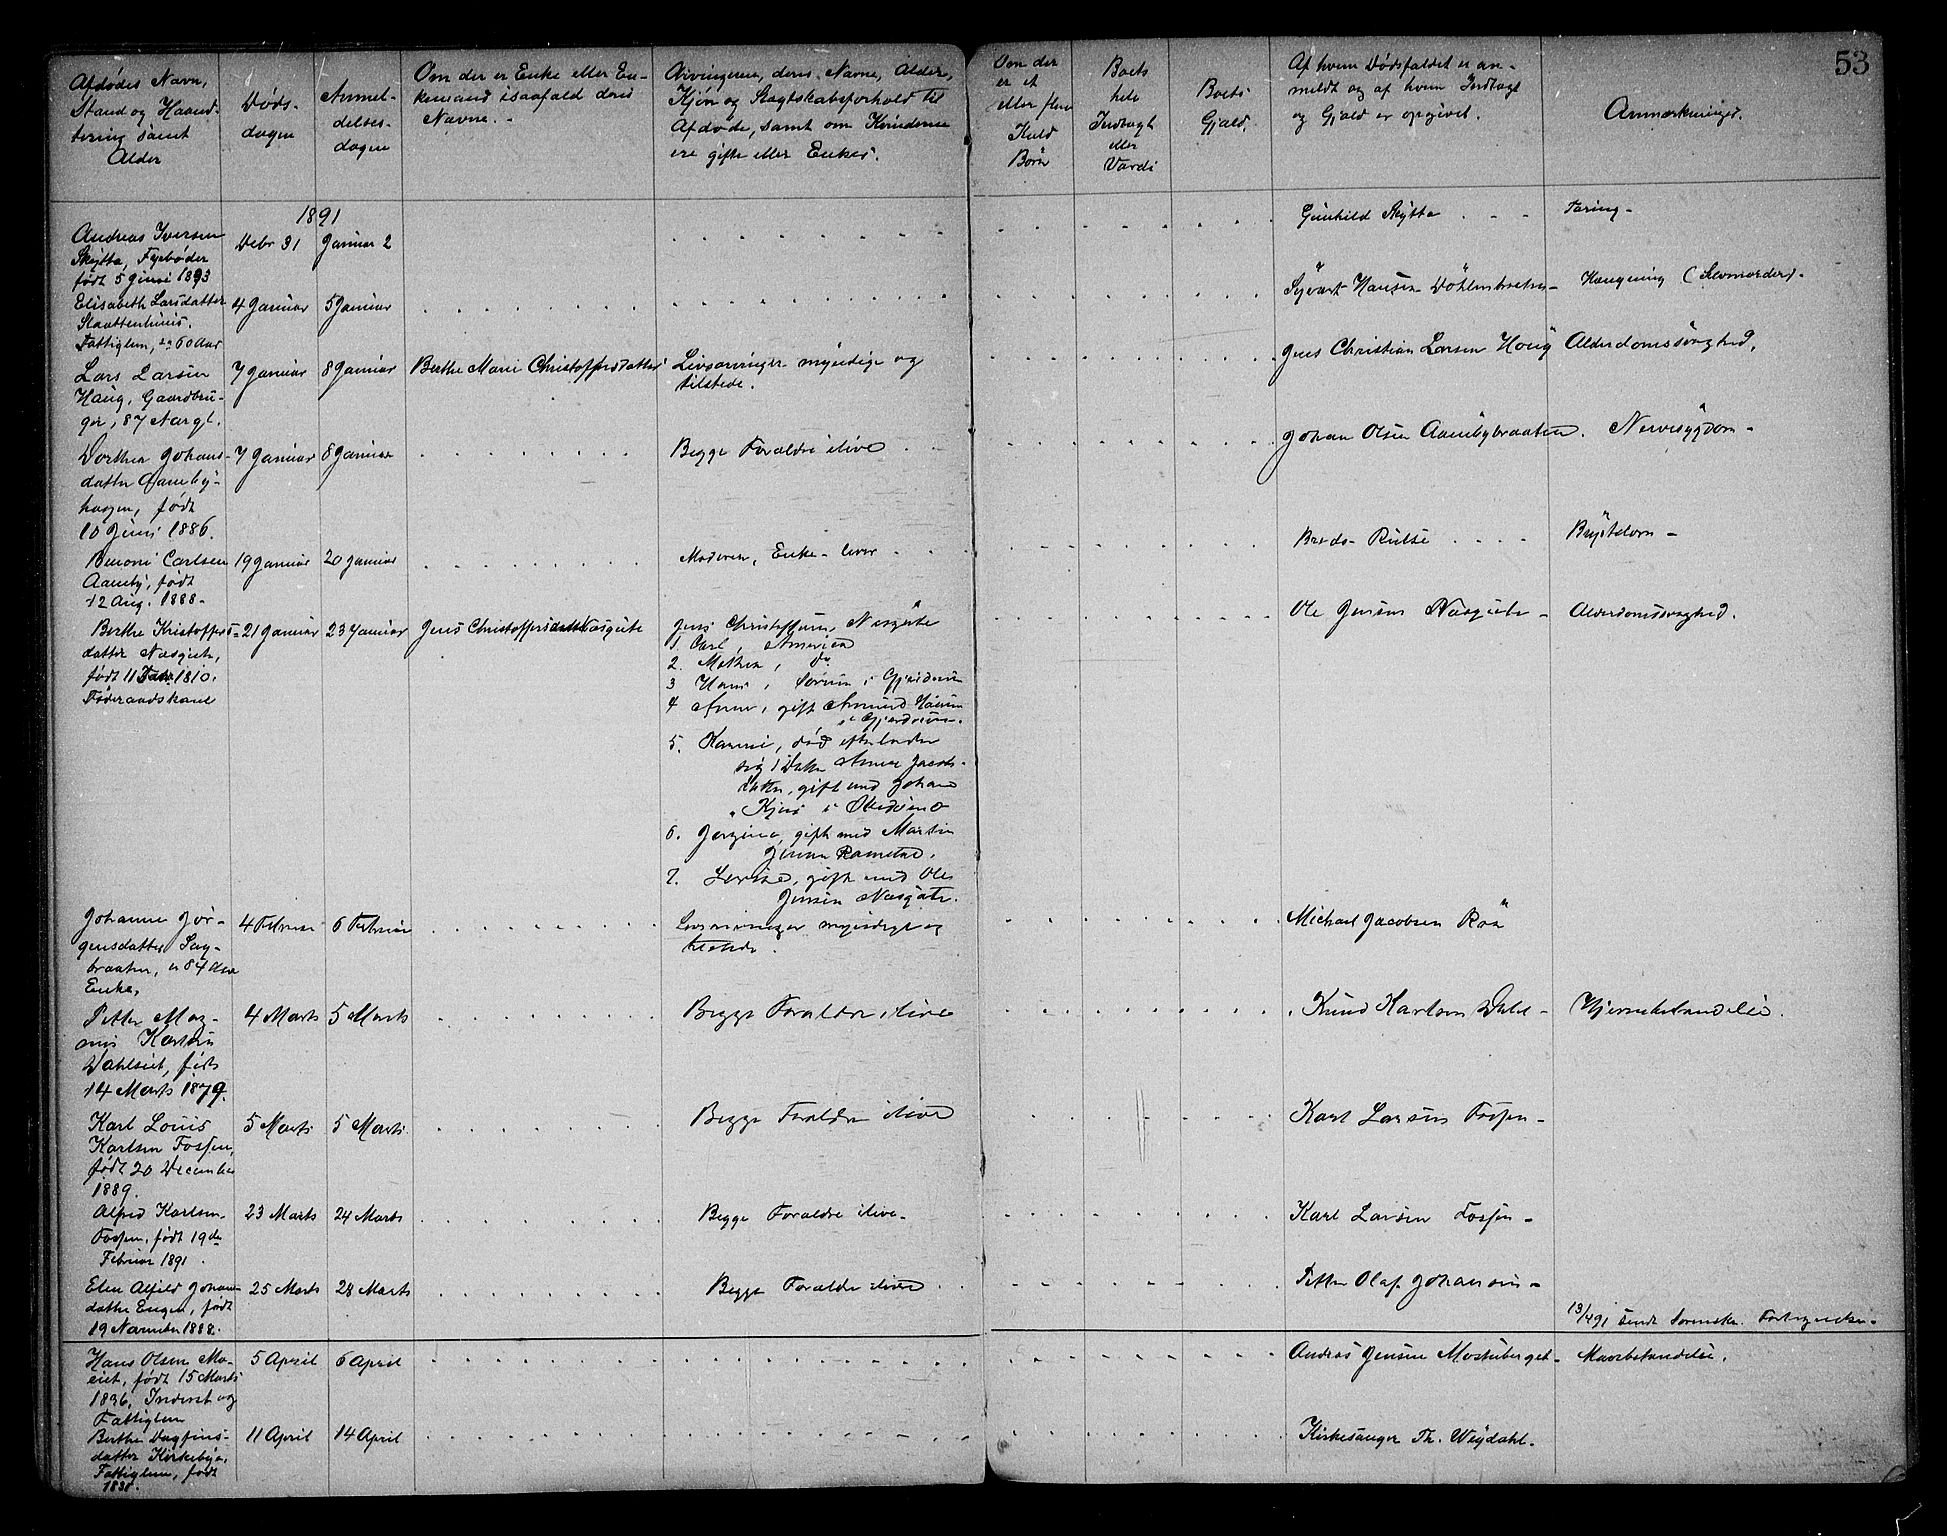 53
Afdødes Navn,
Stand og Haand-
tering samt
Alder
Døds-
dagen
Anmel-
delses-
dagen
Om der er Enke eller En-
kemand isaafald dens
Navne.
Arvingerne, deres Navne, Alder,
Kjøn og Slagtskabsforhold til
Afdøde, samt om Kvinderne
ere gifte eller Enker.
Om der
er et
eller flere
Kuld
Børn
Boets
hele
Indtægt
eller
Værdi
Boets
Gjæld.
Af hvem Dødsfaldet er an-
meldt og af hvem Indtægt
og Gjæld er opgivet.
Anmærkninger.
1891
Andreas Iversen
Skytta, Fyrbøder
født 5 Juni 1893
Debr 31
Januar 2
Gunhild Skytta
Tæring
Elisabeth Larsdatter
Slaattenhuus.
Fattiglem, 60 Aar
4 Januar
5 Januar
Syvert Hansen
Hængning (Selvmorder).
Lars Larsen
Haug, Gaardbru-
ger, 87 Aargl.
7 Januar
8 Januar
Berthe Marie Christoffersdatter
Livsarvinger myndige og
tilstede.
Jens Christian Larsen Houg
Alderdomssvaghed.
Dorthea Johans-
datter Aaneby-
hagen, født
10 Juni 1886.
7 Januar
8 Januar
Begge Forældre ilive
Johan Olsen Aanebybraaten.
Nervesygdom
Benoni Carlsen
Aaneby, født
12 Aug. 1888.
19 Januar
20 Januar
Moderen, Enke - lever
Berthe Kristoffers-
datter Næsgutu,
født 11 1810.
Føderaadskone
21 Januar
23 Januar
Jens
Jens Christoffersen,
1. Carl, Amerika
2. Mathea, do
3 Hans,
4 Anne, gift Amund
i Gjerdrum.
5. Karine, død efterlader
sig 1 Datter Anne Jacobs-
datter, gift med Johan
6. Jørgine, gift med Martin
7. Lovise, gift med Ole
Jensen
Ole Jensen
Alderdomssvaghed.
Johanne Jør-
gensdatter Sag-
braaten, 84 Aar
Enke,
4 Februar
6 Februar
Livsarvinger myndige og
Michael Jacobsen Roa
Petter Mag-
nus Karlsen
Dahlseiet, født
14 Marts 1879.
4 Marts
5 Marts
Begge Forældre ilive
Knud Karlsen
Hjernebetændelse.
Karl Louis
Karlsen Fossen,
født 20 December
1889.
5 Marts
5 Marts.
Begge Forældre ilive
Karl Larsen Fossen
Alfred Karlsen
Fossen, født 19de
Februar 1891
23 Marts
24 Marts
Begge Forældre ilive
Karl Larsen Fossen
Elen Alfild Johans-
datter Engen, født
19 November 1888.
25 Marts
28 Marts
Begge Forældre ilive
Petter Olaf Johansen
13/4 91 sendt Fortegnelse
Hans Olsen Mo-
eiet, født 15 Marts
1836, Inderst og
Fattiglem
5 April
6 April
Andreas Jensen Mostuberget
Mavebetændelse.
Berthe Dagfins-
datter Kirkeby,
Fattiglem, født
11 April
14 April
Kirkesanger Th. Weydahl.